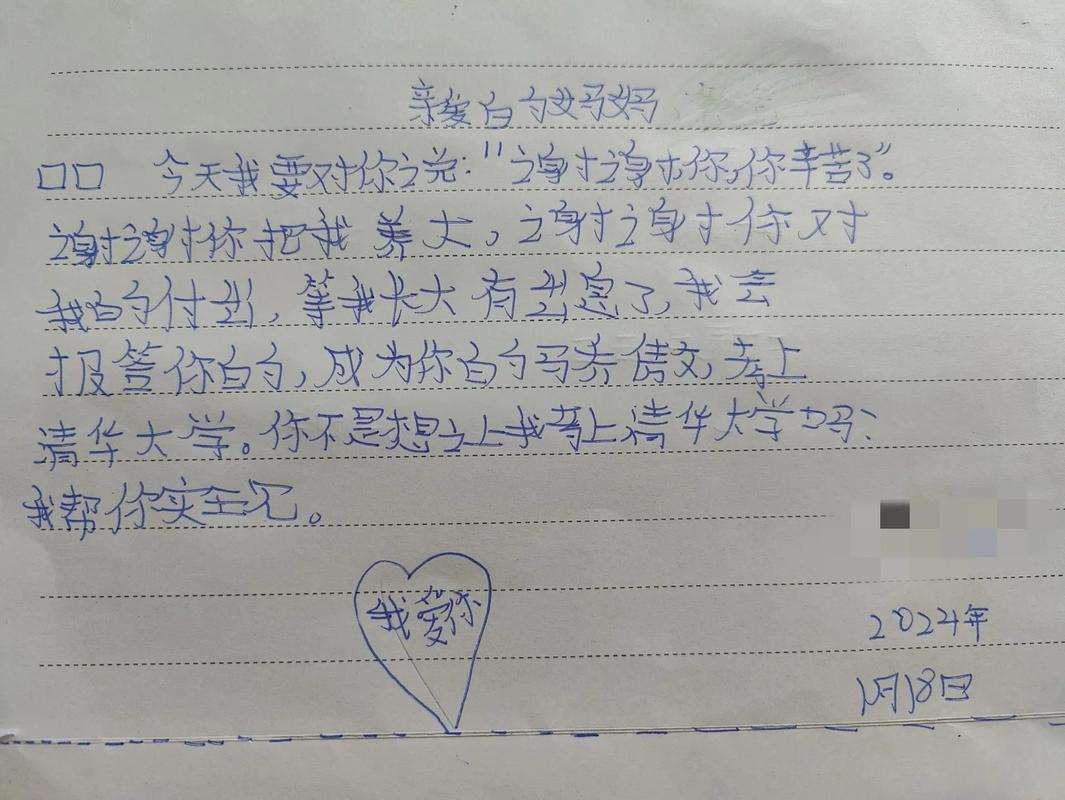 亲爱的妈妈
□□ 今天我要对你说:"谢谢你,你辛苦了"。
谢谢你把我养大,谢谢你对
我的付出,等我长大有出息了,我会
报答你的,成为你的骄傲,考上
清华大学。你不是想让我考上清华大学吗?
我帮你实现。
我爱你
2024年
1月18日